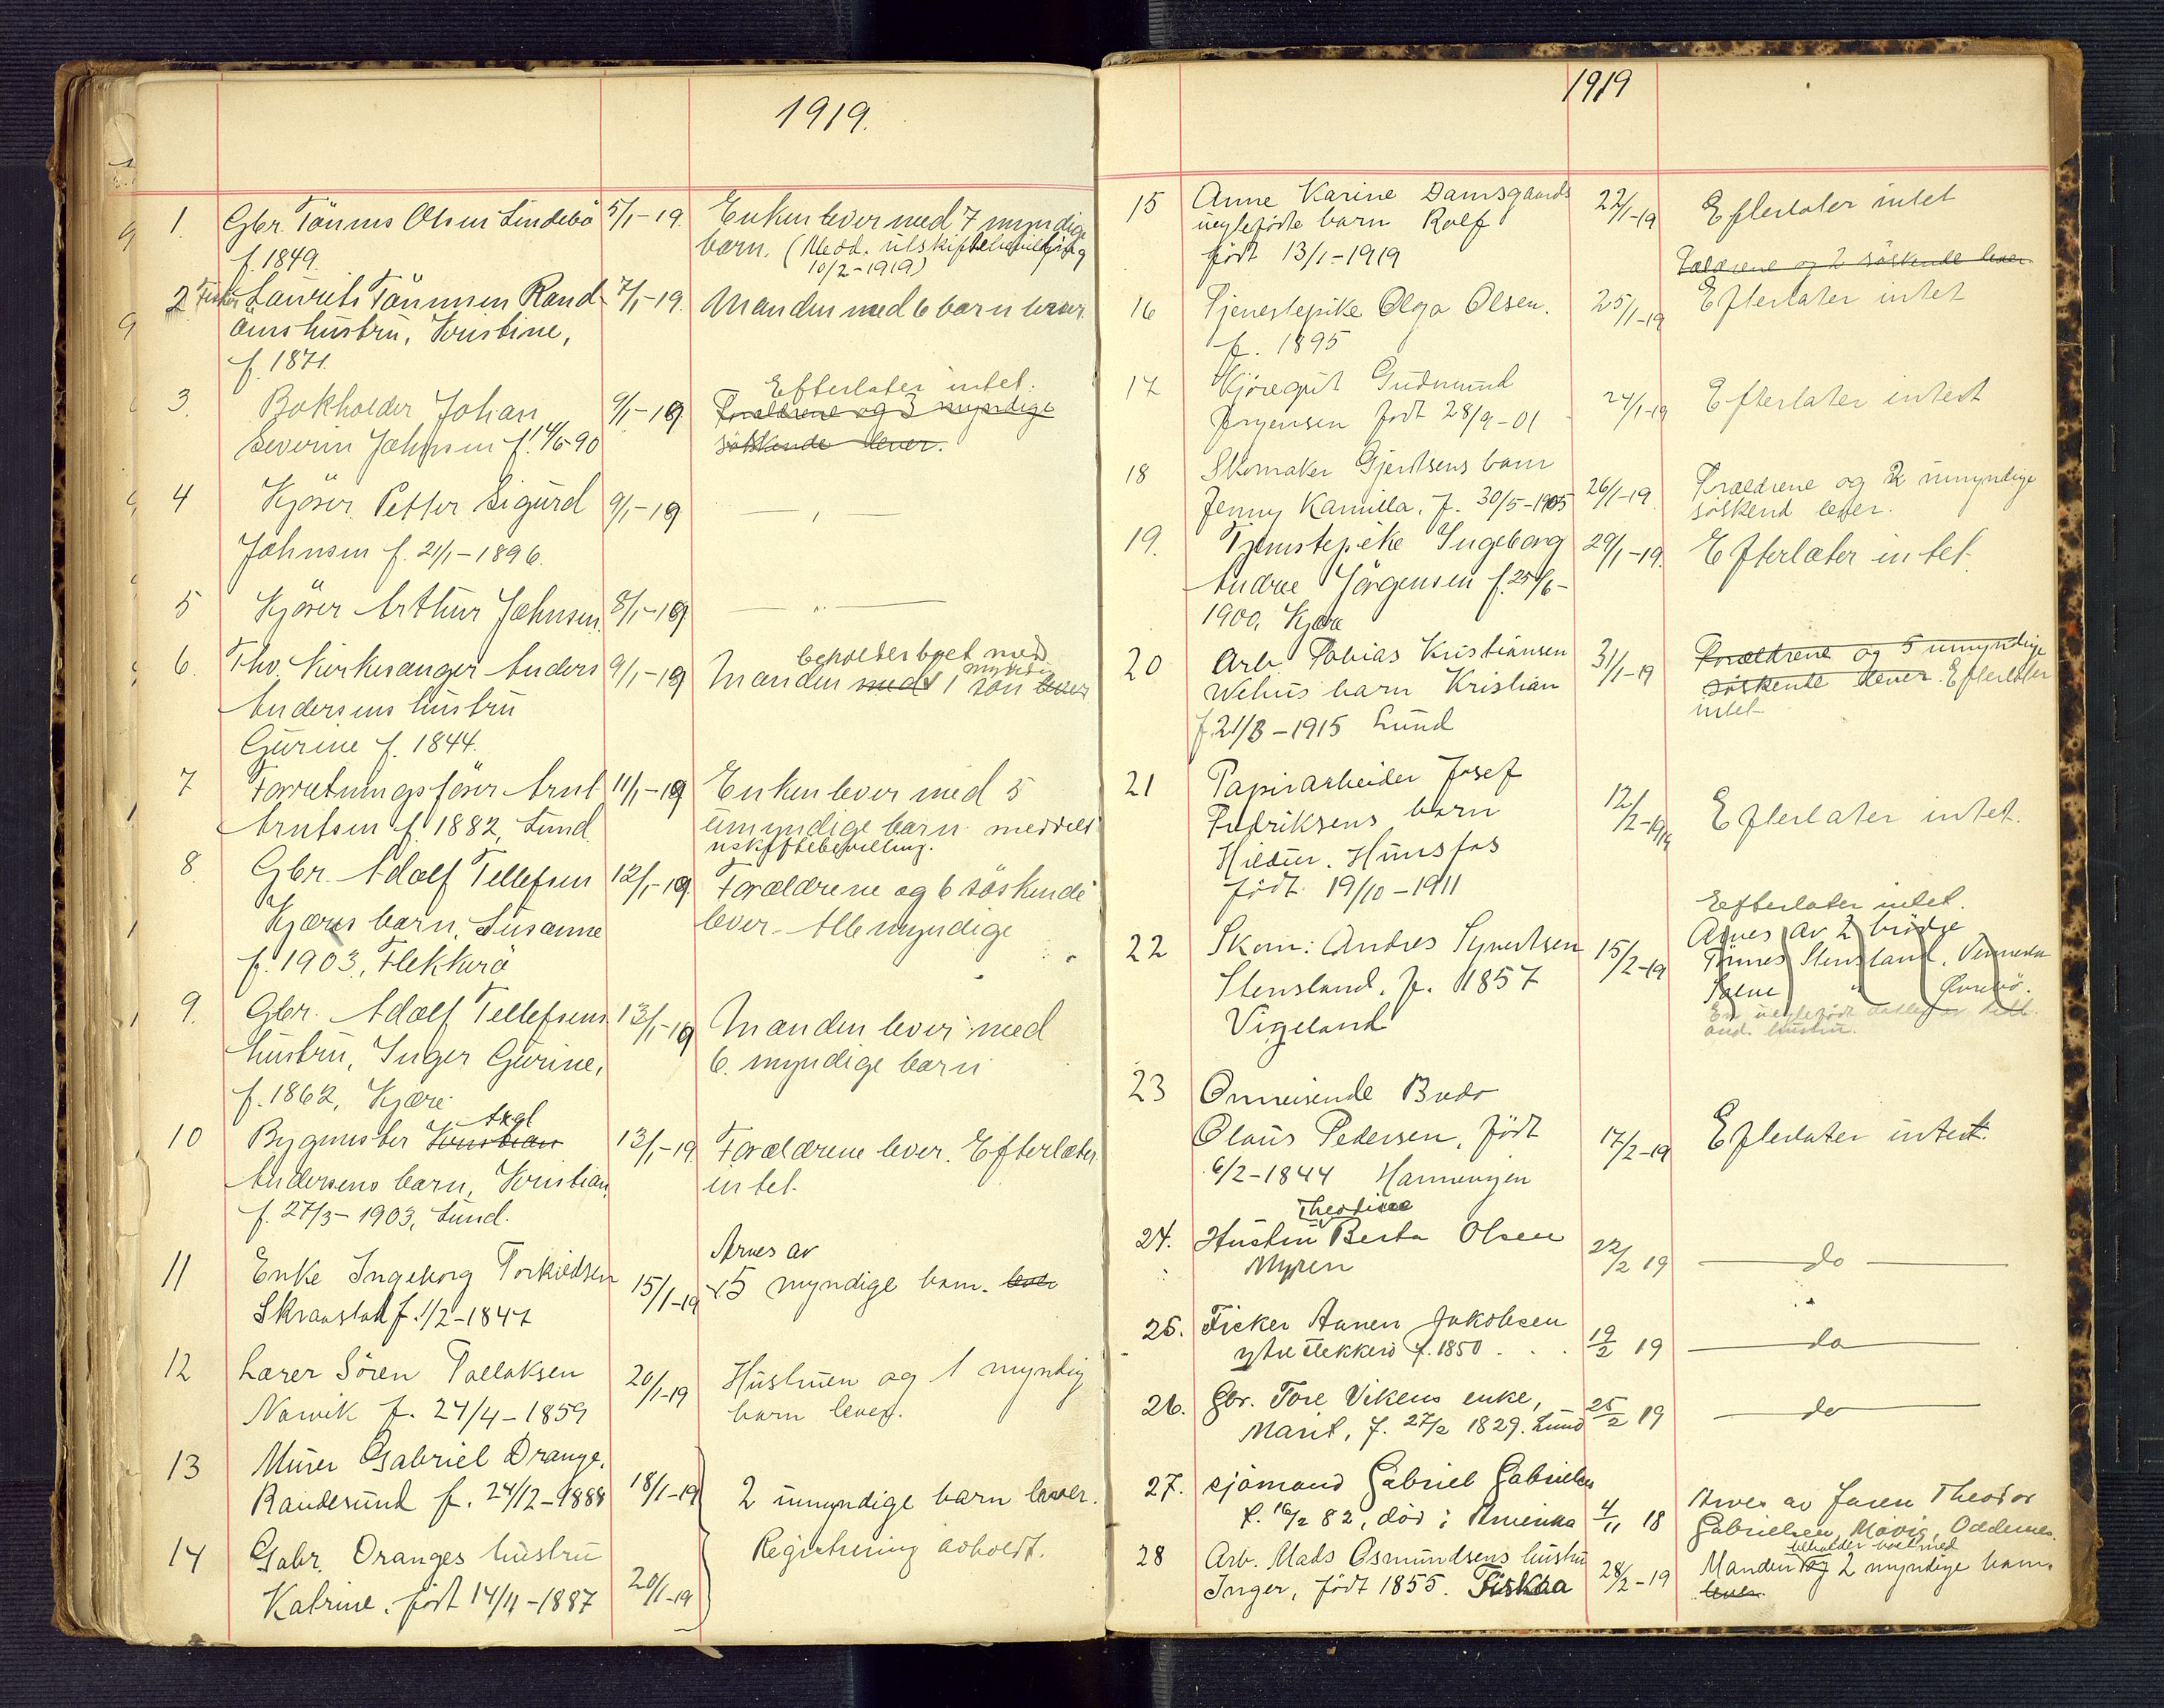 1919.
1. Gbr. Tönnes Olsen Lindebö 5/1-19. Enken lever med 7 myndige
f. 1849. barn. (Medd. utskiftebevilling
10/2-1919)
2 Fisker Laurits Tönnesen Rand- 7/1-19. Manden med 6 barn lever.
öens hustru, Kristine,
f. 1871.
Efterlater intet.
3. Bokholder Johan 9/1-19 Forældrene og 3 myndige
Severin Johnsen f. 14/6-90 söskende lever.
4 Kjörer Petter Sigurd 9/1-19 — " —
Johnsen f. 21/1-1896.
5 Kjörer Arthur Johnsen 8/1-19 — " —
beholder boet med
6. Fhv. Kirkesanger Anders 9/1-19 Manden med 1 myndig sön lever
Andersens hustru
Gurine f. 1844.
7 Forretningsförer Arnt 11/1-19 Enken lever med 5
Arntsen f. 1882, Lund umyndige barn. meddelt
uskiftebevilling.
8. Gbr. Adolf Tellefsen 12/1-19. Forældrene og 6 söskende
Kjæres barn, Susanne lever. Alle myndige
f. 1903, Flekkerö
9. Gbr. Adolf Tellefsens 13/1-19 Manden lever med
hustru, Inger Gurine, 6. myndige barn
f. 1862, Kjære
Axel
10 Bygmester Kristian 13/1-19 Forældrene lever. Efterlater
Andersens barn, Kristian, intet.
f. 27/3-1903, Lund.
Arves av
11 Enke Ingeborg Torkildsen 15/1-19 5 myndige barn. lever
Skraastad f. 1/2-1847
12 Lærer Sören Tallaksen 20/1-19 Hustruen og 1 myndig
Narvik f. 24/4-1859 barn lever.
13 Murer Gabriel Drange,
Randesund f. 24/12-1888 18/1-19 2 umyndige barn lever.
14 Gabr. Dranges hustru Registrering avholdt.
Katrine. født 14/4-1887 20/1-19
1919
15 Anne Karine Damsgaards 22/1-19 Efterlater intet
uegtefødte barn Rolf
født 13/1-1919
Forældrene og 2 söskende lever.
16 Tjenestepike Olga Olsen. 25/1-19 Efterlater intet
f. 1895
17 Kjöregut Gudmund
Jørgensen født 28/9-01 24/1-19 Efterlater intet
18 Skomaker Gjertsens barn
Jenny Kamilla. f. 30/5-1905 26/1-19. Forældrene og 2 umyndige
söskend lever.
19. Tjenstepike Ingeborg 29/1-19. Efterlater intet.
Andrea Jörgensen f. 25/6-
1900, Kjære
20 Arb Tobias Kristiansen 31/1-19 Forældrene og 5 umyndige
Wehus barn Kristian söskende lever. Efterlater
f. 21/8-1915 Lund intet
21 Papirarbeider Josef
Fredriksens barn 12/2-1919 Efterlater intet.
Hildur. Hunsfos
født 19/10-1911
Efterlater intet.
22 Skom: Andres Syvertsen 15/2-19 Arves av 2 brödre
Stensland, f. 1857 Tönnes Stensland, Vennesla
Vigeland Salve " Øvrebö.
23 Omreisende Bredo
Olaus Pedersen, født 17/2-19 Efterlater intet.
6/2-1844
24. Hustru Theodine Berta Olsen 22/2 19 — do —
Myren
25. Fisker Aanen Jakobsen 19/2 19 — do —
ytre Flekkerö f. 1850.
26. Gbr. Tore Vikens enke, 25/2 19 — do —
Marit, f. 27/2 1829. Lund
27. Sjömand Gabriel Gabrielsen
f. 16/2 82, död i Amerika 4/11 18 Arves av faren Theodor
Gabrielsen, Mövig, Oddernes.
beholder boet med
28 Arb. Mads Osmundsens hustru 28/2-19 Manden og 2 myndige barn.
Inger, født 1855. Fiskaa lever.